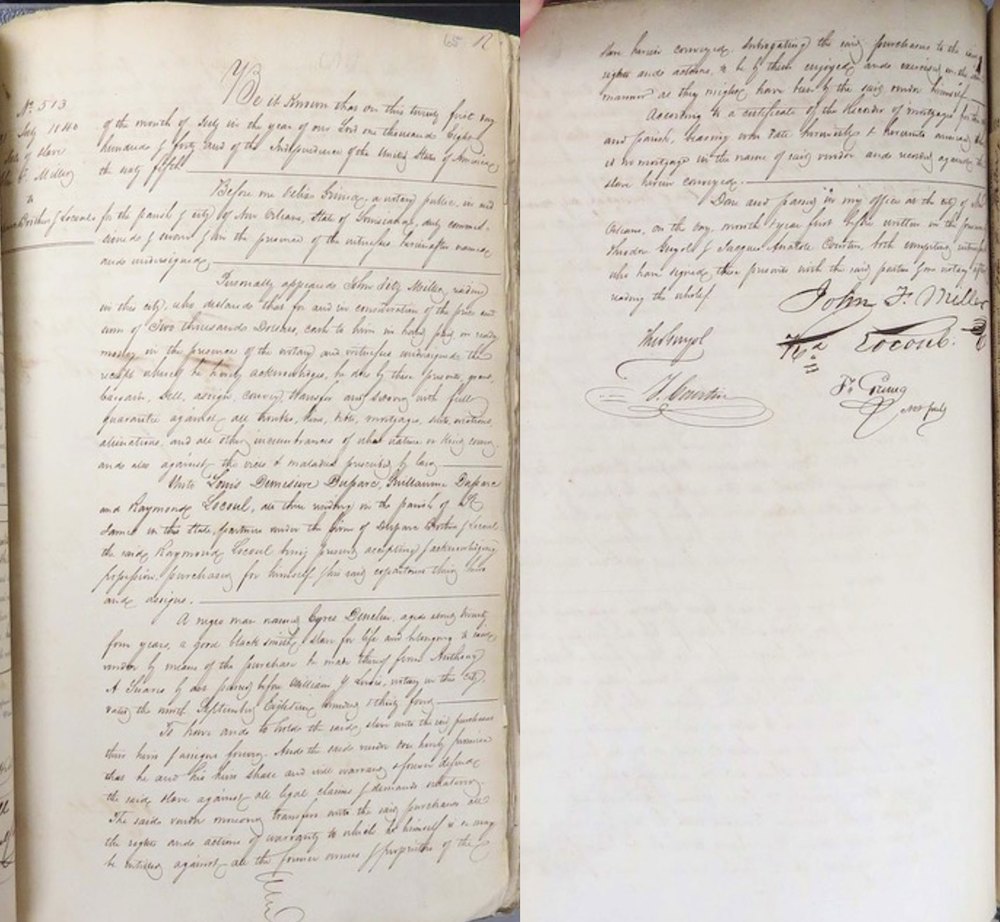 65 12
No. 513
July 1840
Sale of slave
John F. Miller
to
Duparc Brothers & Locoul
Be it Known that on this twenty first day
of the month of July in the year of our Lord one thousand eight
hundred & forty and of the Independence of the United States of America
the sixty fifth
Before me Felix Grima, a notary public, in and
for the parish & city of New Orleans, State of Louisiana, duly commis-
sioned & sworn & in the presence of the witnesses hereinafter named
and undersigned
Personally appeared John Fitz Miller, residing
in this city, who declared that for and in consideration of the price and
sum of Two thousand Dollars, cash to him in hand paid in ready
money in the presence of the notary and witnesses undersigned the
receipt whereof he hereby acknowledges, he does by these presents, grant,
bargain, sell, assign, convey, transfer and with full
guarantee against all troubles, liens, debts, mortgages, evictions,
alienations, and all other incumbrances of what nature or kind soever,
and also against the vices & maladies prescribed by law
Unto Louis Demesure Duparc, Guillaume Duparc
and Raymond Locoul, all three residing in the parish of St
James in this State, partners under the firm of Duparc Brothers & Locoul
the said Raymond Locoul being present accepting & acknowledging
possession, purchasing for himself & his said copartners their heirs
and assigns.
A negro man named Cyres aged about twenty
four years, a good black smith, slave for life and belonging to said
vendor by means of the purchase he made thereof from Anthony
A Suares by act passed before William Y. Lewis, notary in this City
dated the ninth September Eighteen hundred & thirty four
To have and to hold the said slave unto the said purchasers
their heirs & assigns forever. And the said vendor does hereby promise
that he and his heirs shall and will warrant & forever defend
the said slave against all legal claims & demands whatsoever.
The said vendor moreover transfers unto the said purchasers all
the rights and actions of warranty to which he himself is or may
be entitled against all the former owners & proprietors of the
slave herein conveyed. Subrogating the said purchasers to the said
rights and actions, to be by them enjoyed and exercised in the same
manner as they might have been by the said vendor himself
According to a certificate of the Recorder of mortgages for this city
and parish, bearing even date herewith & hereunto annexed there
is no mortgage in the name of said vendor and recorded against the
slave herein conveyed.
Done and passed in my office at the city of New
Orleans, on the day, month & year first before written in the presence
Theodore Guyol & Jacques Anatole Courtin, both competent witnesses
who have signed these presents with the said parties & me notary after
reading the whole
John F. Miller
Theo Guyol
Rd. Locoul.
J. Courtin
Fx. Grima
Not. Pub